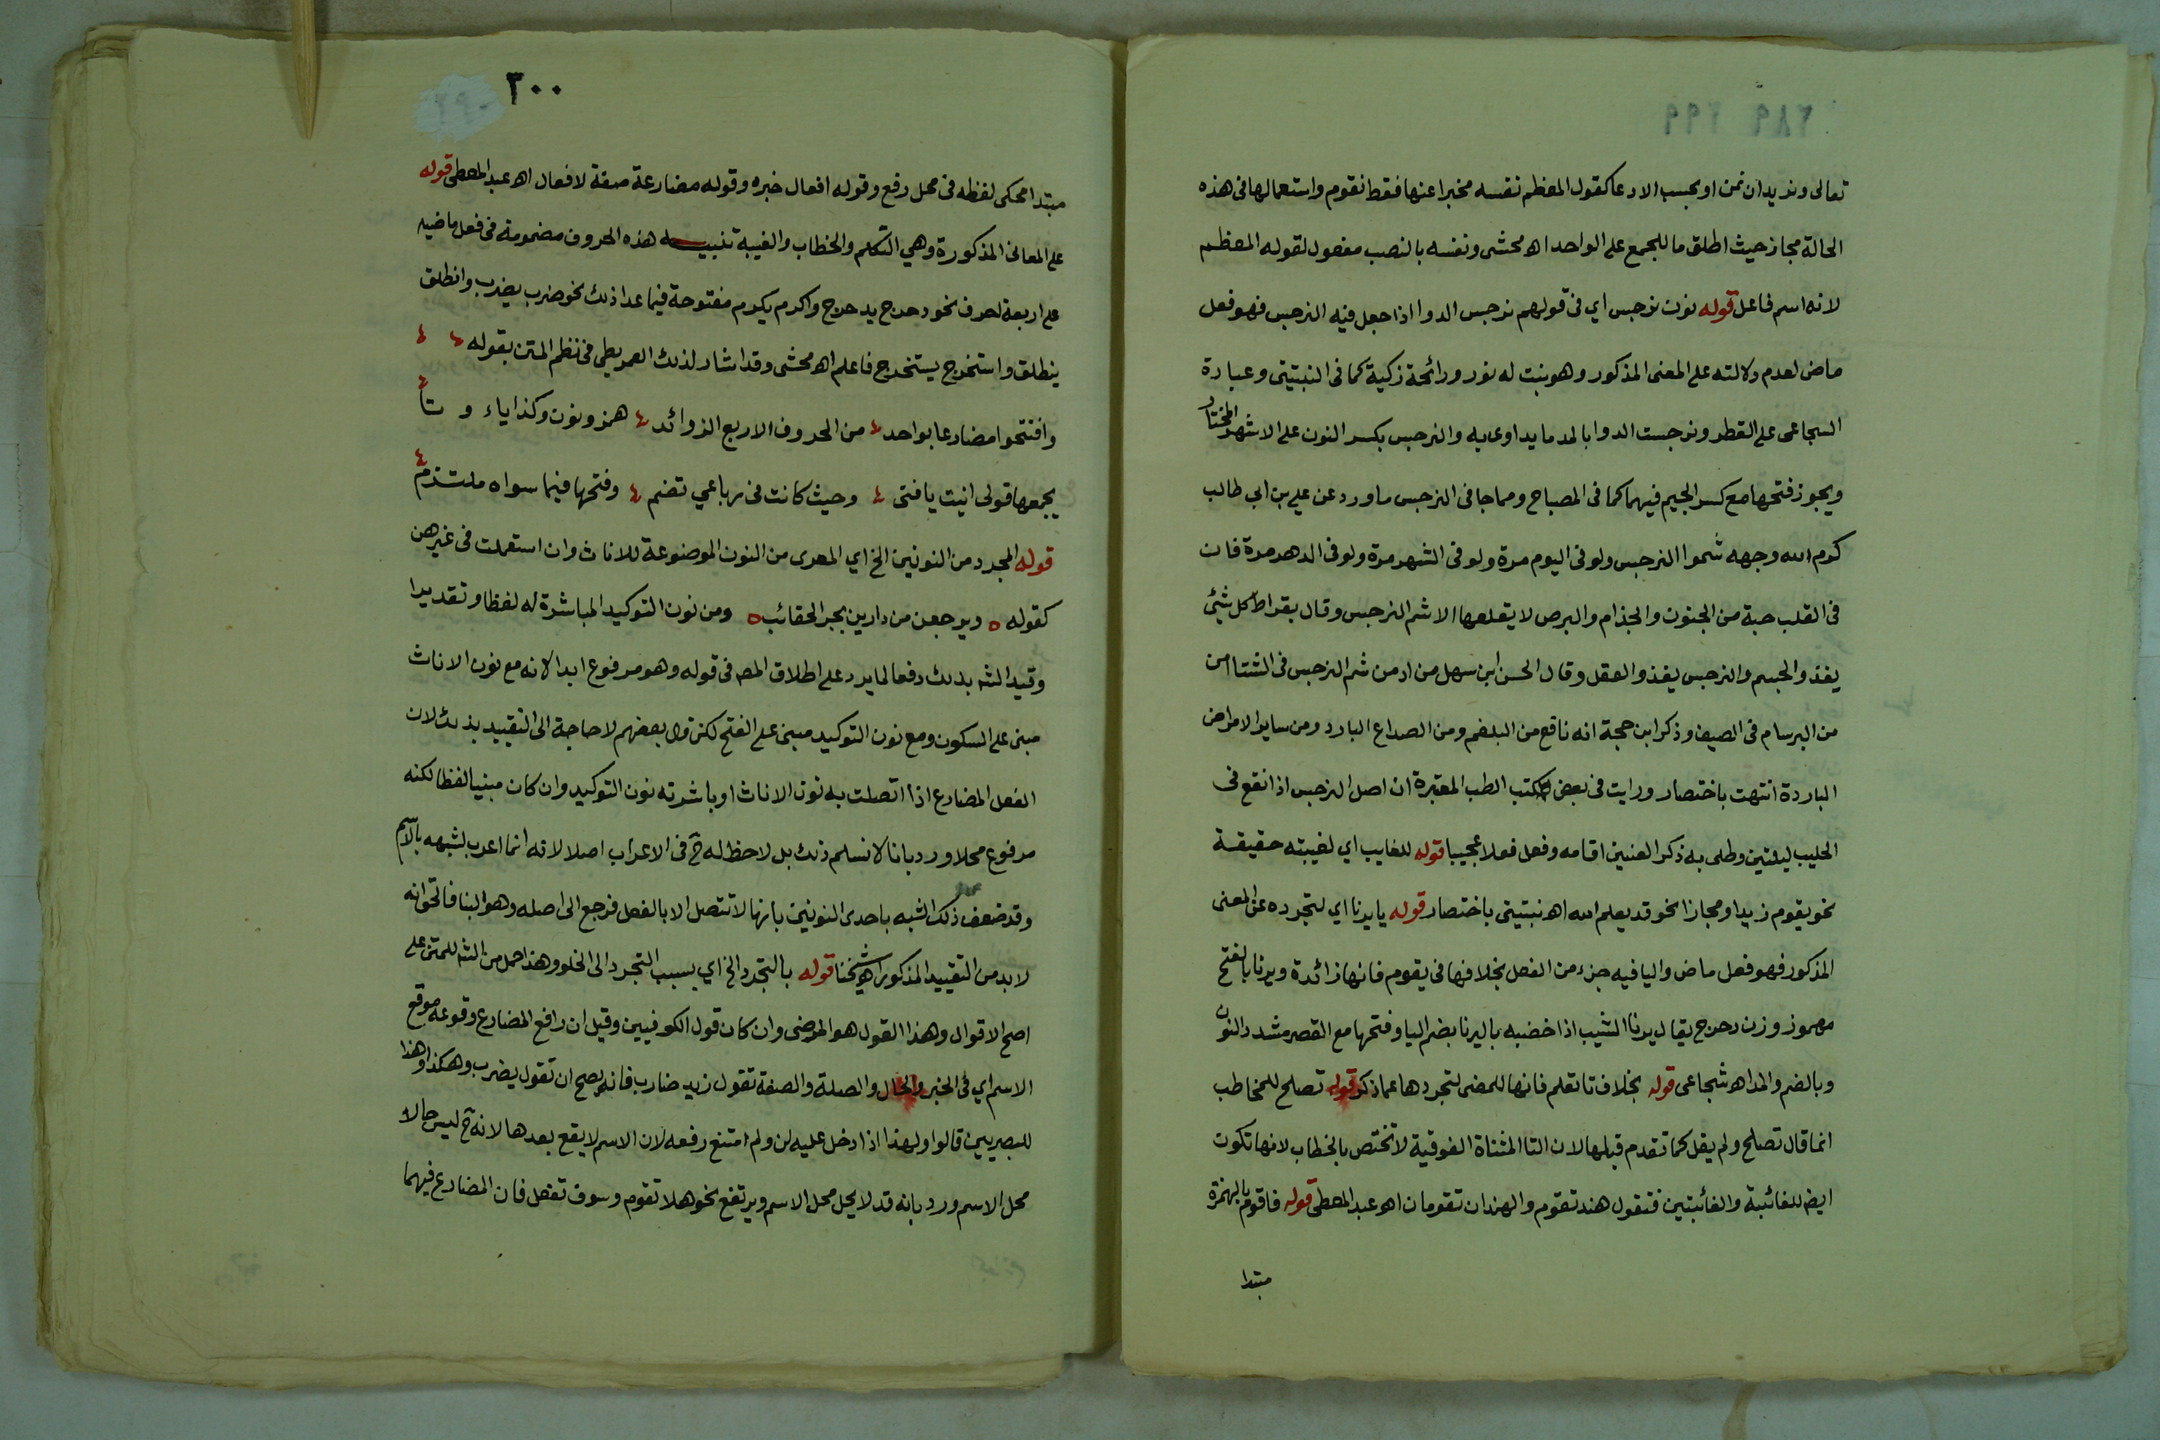 تعالى ونريد ان نمن او بحسب الادعا كقول المعظم نفسه مخبرا عنها فقط نقوم واستعمالها في هذه
الحالة مجاز حيث اطلق ما للجمع على الواحد اه محشى ونفسه بالنصب مفعول لقوله المعظم
لانه اسم فاعل قوله نون نرجس اي في قولهم نرجس الدوا اذا جعل فيه النرجس فهو فعل
ماض لعدم دلالته على المعنى المذكور وهو نبت له نور ورائحة زكية كما في النبتيتى وعبارة
السجاعى على القطر ونرجست الدوا بالمد ما يداوى به والنرجس بكسر النون على الاشهر المختار
ويجوز فتحها مع كسر الجيم فيهما كما في المصباح ومما جا في النرجس ما ورد عن علي بن ابي طالب
كرم الله وجهه شموا النرجس ولو في اليوم مرة ولو في الشهر مرة ولو في الدهر مرة فان
في القلب حبة من الجنون والجذام والبرص لا يقلعها الا شم النرجس وقال بقراط كل شئ
يغذو الجسم والنرجس يغذو العقل وقال الحسن ابن سهل من ادمن شم النرجس في الشتا امن
من البرسام في الصيف وذكر ابن حجة انه نافع من البلغم ومن الصداع البارد ومن ساير الامراض
الباردة انتهت باختصار ورايت في بعض كتب الطب المعتبرة ان اصل النرجس اذا نقع في
الحليب ليلتين وطلى به ذكر العنين اقامه وفعل فعلا عجيبا قوله للغايب اي لغيبته حقيقة
نحو يقوم زيد او مجازا نحو قد يعلم الله اه نبتيتى باختصار قوله يا يرنا اي لتجرده عن المعنى
المذكور فهو فعل ماض واليا فيه جزء من الفعل بخلافها في يقوم فانها زائدة ويرنا بالفتح
مهموز وزن دحرج يقال يرنا الشيب اذا خضبه باليرنا بضم اليا وفتحها مع القصر مشدد النون
وبالضم والمد اه شجاعى قوله بخلاف تا تعلم فانها للمضى لتجردها عما ذكر قوله تصلح للمخاطب
انما قال تصلح ولم يقل كما تقدم قبلها لان التا المثناة الفوقية لا تختص بالخطاب لانها تكون
ايض للغائبة والغائبتين فتقول هند تقوم والهندان تقومان اه عبد المعطى قوله فاقوم بالهمزة
مبتدا
٣٠٠
مبتدا محكى لفظه في محل رفع وقوله افعال خبره وقوله مضارعة صفة لافعال اه عبد المعطى قوله
على المعانى المذكورة وهي التكلم والخطاب والغيبة تنبيه هذه الحروف مضمومة في فعل ماضيه
على اربعة احرف نحو دحرج يدحرج واكرم يكرم مفتوحة فيما عدا ذلك نحو ضرب يضرب وانطلق
ينطلق واستخرج يستخرج فاعلم اه محشى وقد اشار لذلك العمريطى في نظم المتن بقوله
وافتتحوا مضارعا بواحد من الحروف الاربع الزوائد همز ونون وكذا ياء و تا
يجمعها قولى انيت يا فتى وحيث كانت في رباعي تضم وفتحها فيما سواه ملتزم
قوله المجرد من النونين الخ اي المعرى من النون الموضوعة للاناث وان استعملت في غيرهن
كقوله ويرجعن من دارين بجر الحقائب ومن نون التوكيد المباشرة له لفظا وتقديرا
وقيد الشه بذلك دفعا لما يرد على اطلاق المص في قوله وهو مرفوع ابدا لانه مع نون الاناث
مبنى على السكون ومع نون التوكيد مبنى على الفتح لكن قول بعضهم لا حاجة الى التقييد بذلك لان
الفعل المضارع اذا اتصلت به نون الاناث او باشرته نون التوكيد وان كان مبنيا لفظا لكنه
مرفوع محلا ورد بانا لا نسلم ذلك بل لا حظ له ح في الاعراب اصلا لانه انما اعرب لشبهه بالاسم
وقد ضعف ذلك الشبه باحدى النونين بانها لا تتصل الا بالفعل فرجع الى اصله وهو البنا فالحق انه
لا بد من التقييد المذكور اه شيخنا قوله بالتجرد الخ اي بسبب التجرد الى الخلو وهذا حمل من الشه للمتن على
اصح الاقوال وهذا القول هو المرضى وان كان قول الكوفيين وقيل ان رافع المضارع وقوعه موقع
الاسم اي في الخبر والحال والصلة والصفة تقول زيد ضارب فانه يصح ان تقول يضرب وهكذا وهذا
للبصريين قالوا ولهذا اذا دخل عليه لن ولم امتنع رفعه لان الاسم لا يقع بعدها لانه ح ليس حالا
محل الاسم ورد بانه قد لا يحل محل الاسم ويرتفع نحو هلا تقوم وسوف تفعل فان المضارع فيهما